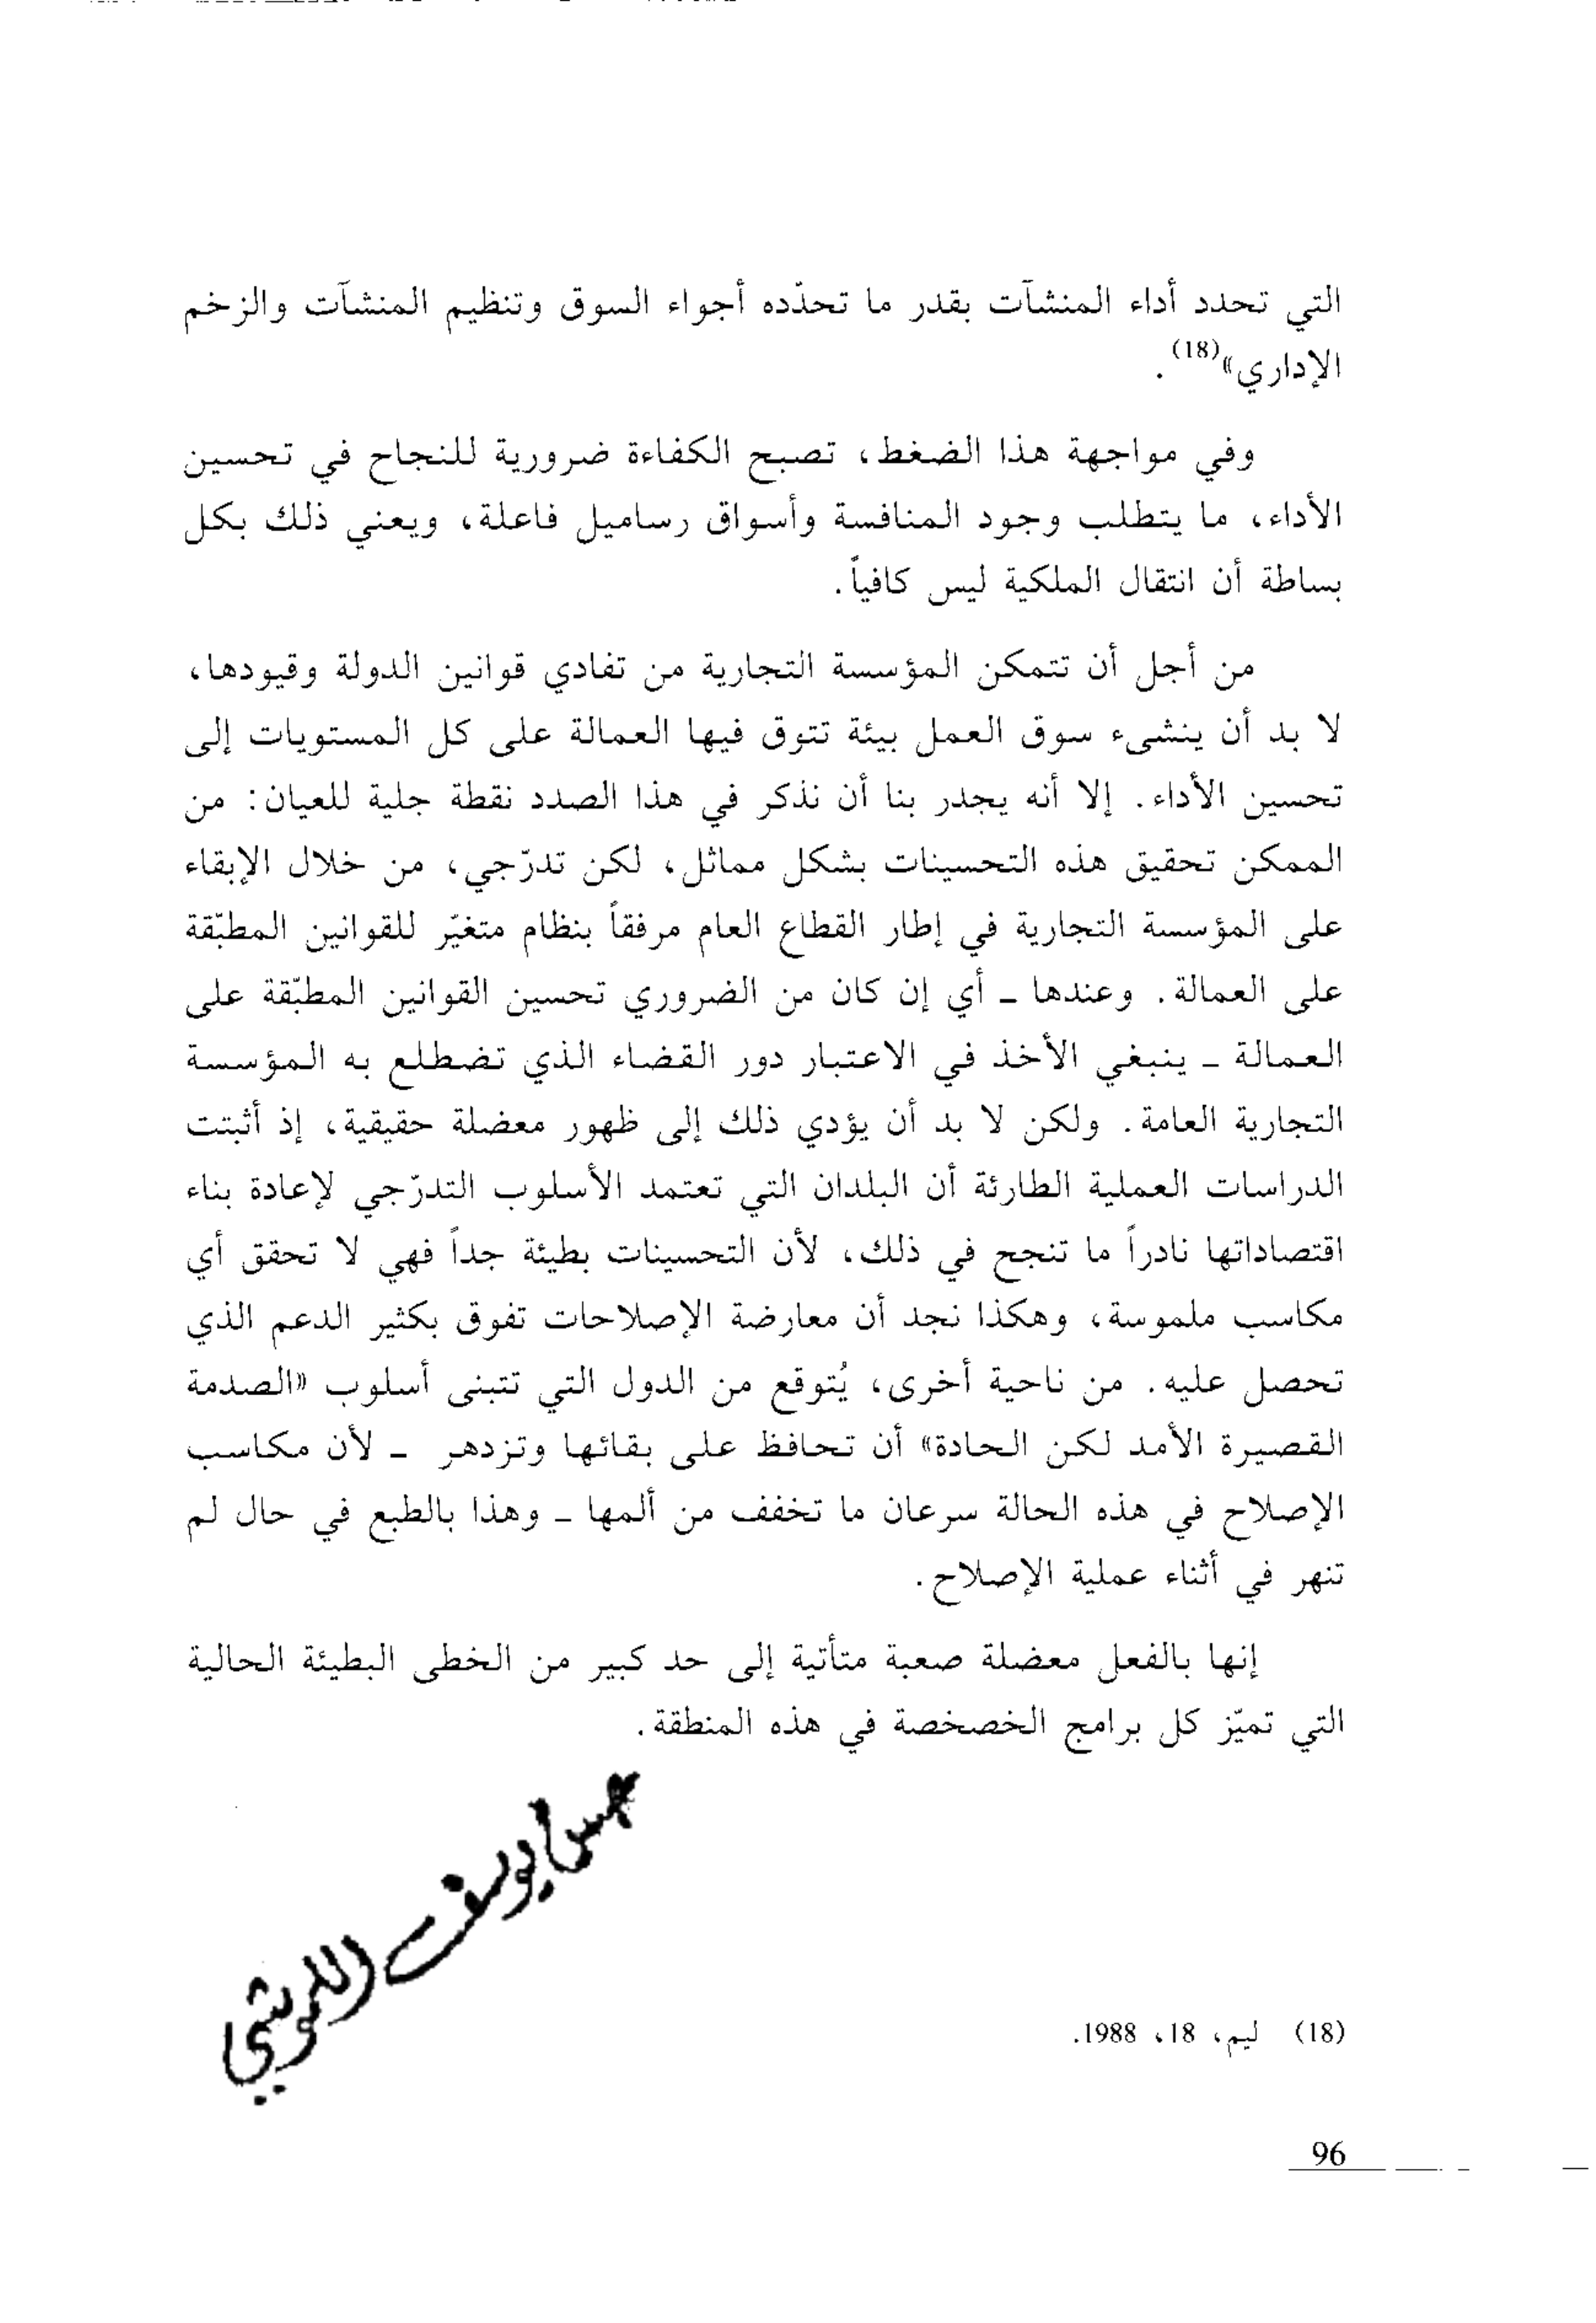 التي تحدد أداء المنشآت بقدر ما تحدّده أجواء السوق وتنظيم المنشآت والزخم
الإداري»(18).
وفي مواجهة هذا الضغط، تصبح الكفاءة ضرورية للنجاح في تحسين
الأداء، ما يتطلب وجود المنافسة وأسواق رساميل فاعلة، ويعني ذلك بكل
بساطة أن انتقال الملكية ليس كافياً.
من أجل أن تتمكن المؤسسة التجارية من تفادي قوانين الدولة وقيودها،
لا بد أن ينشىء سوق العمل بيئة تتوق فيها العمالة على كل المستويات إلى
تحسين الأداء. إلا أنه يجدر بنا أن نذكر في هذا الصدد نقطة جلية للعيان: من
الممكن تحقيق هذه التحسينات بشكل مماثل، لكن تدرّجي، من خلال الإبقاء
على المؤسسة التجارية في إطار القطاع العام مرفقاً بنظام متغيّر للقوانين المطبّقة
على العمالة. وعندها ـ أي إن كان من الضروري تحسين القوانين المطبّقة على
العمالة ـ ينبغي الأخذ في الاعتبار دور القضاء الذي تضطلع به المؤسسة
التجارية العامة. ولكن لا بد أن يؤدي ذلك إلى ظهور معضلة حقيقية، إذ أثبتت
الدراسات العملية الطارئة أن البلدان التي تعتمد الأسلوب التدرّجي لإعادة بناء
اقتصاداتها نادراً ما تنجح في ذلك، لأن التحسينات بطيئة جداً فهي لا تحقق أي
مكاسب ملموسة، وهكذا نجد أن معارضة الإصلاحات تفوق بكثير الدعم الذي
تحصل عليه. من ناحية أخرى، يُتوقع من الدول التي تتبنى أسلوب «الصدمة
القصيرة الأمد لكن الحادة» أن تحافظ على بقائها وتزدهر ـ لأن مكاسب
الإصلاح في هذه الحالة سرعان ما تخفف من ألمها ـ وهذا بالطبع في حال لم
تنهر في أثناء عملية الإصلاح.
إنها بالفعل معضلة صعبة متأتية إلى حد كبير من الخطى البطيئة الحالية
التي تميّز كل برامج الخصخصة في هذه المنطقة.
يوسف
(18) ليم، 18، 1988.
96